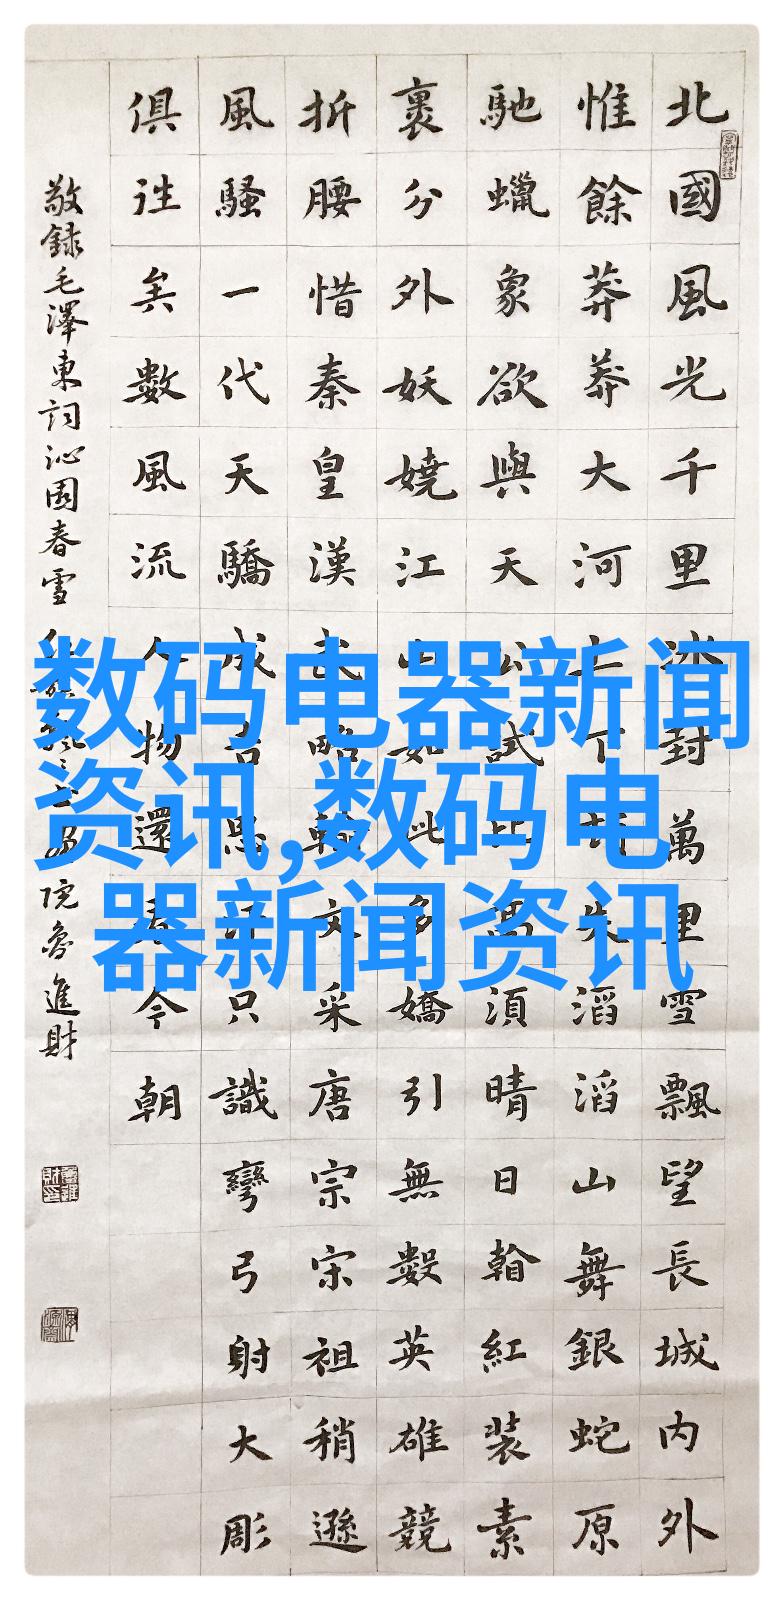 数码电器新闻
资讯,数码电
器新闻资讯
北國風光千里冰封萬里雪飄望長城内外
惟餘莽莽大河上下頓失滔滔山舞銀蛇原
馳蠟象欲與天公試比高須晴日看紅裝素
裹分外妖嬈江山如此多嬌引無數英雄競
折腰惜秦皇漢武略輸文采唐宗宋祖稍遜
風騷一代天驕成吉思汗只識彎弓射大彫
俱往矣數風流人物還看今朝
敬録毛澤東詞沁園春雪 院魯進財